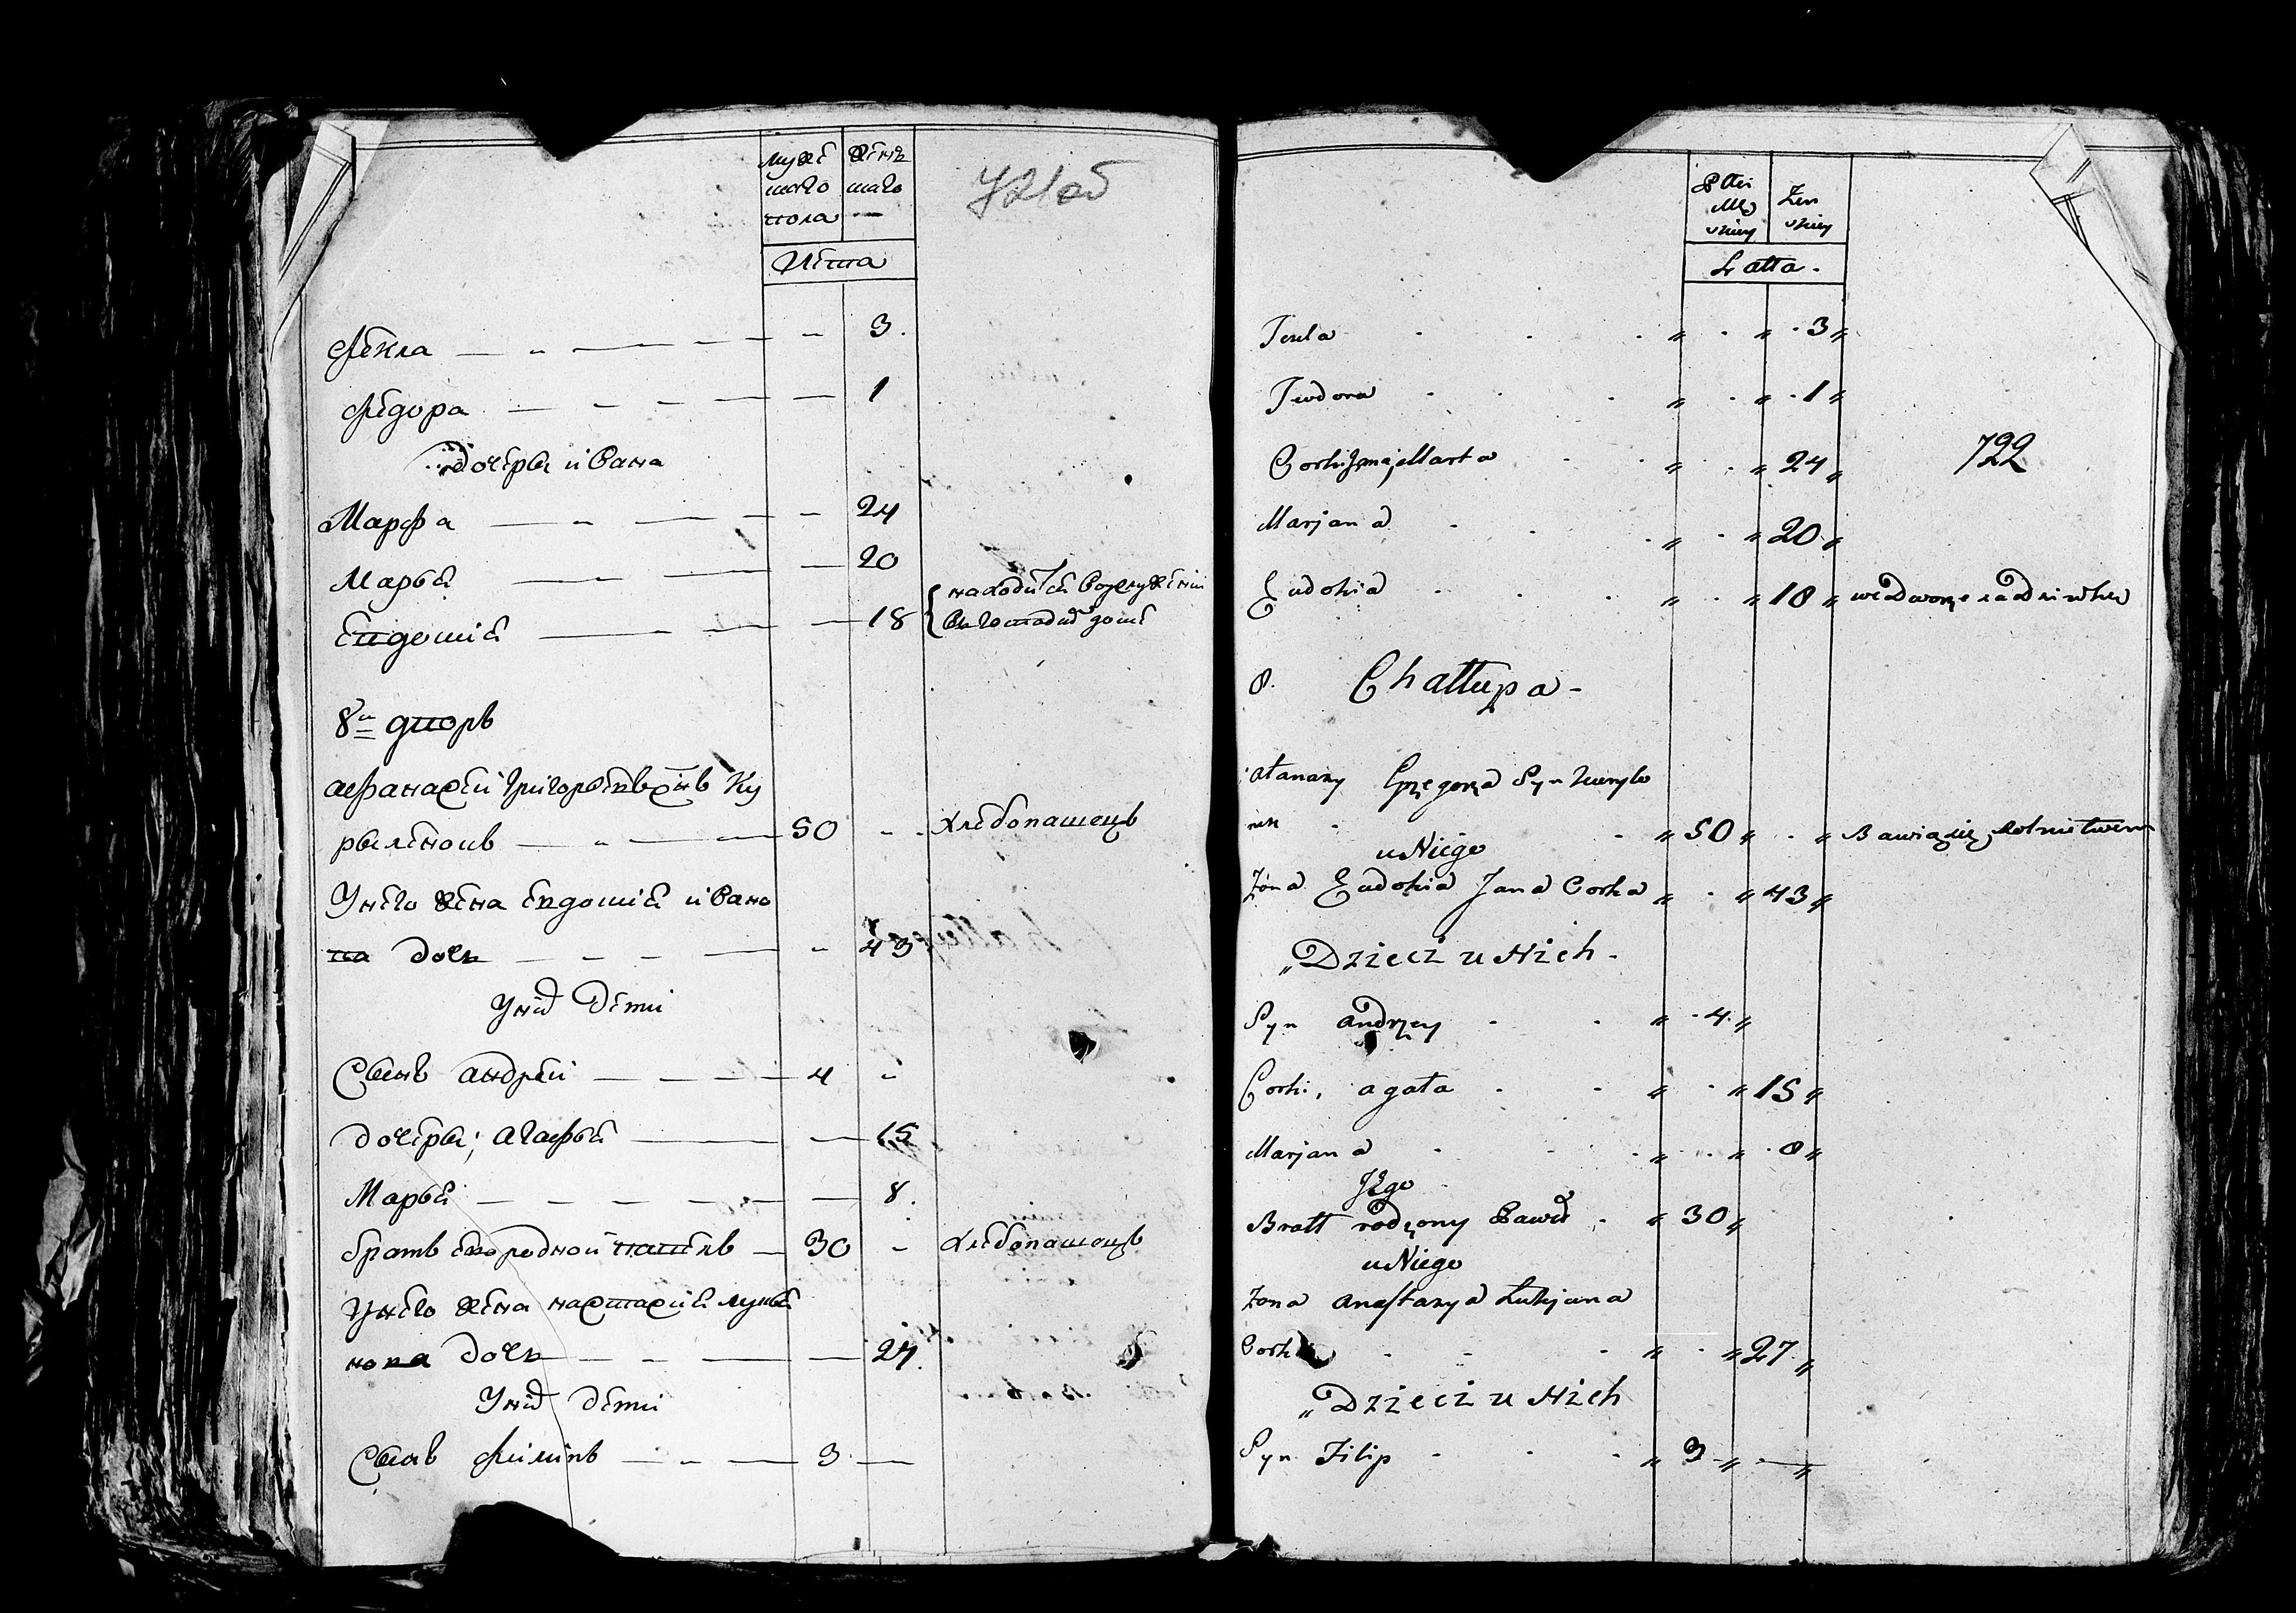 мужескаго пола
женскаго —
лета
Фекла — — 3.
Федора — — 1
дочери ивана
Марфа — — 24
Марья — — 20
Евдокия — — 18 находится воуслужении
8й дворъ
афанасей григорьевъ сынъ Ку
рыленокъ — — 50 - хлебопашецъ
Унего жена евдокия ивано
ва дочь — — 43
Унихъ дети
Сынъ андрей — — 4 -
дочери; агафья — — 15
Марья — — 8.
братъ его родной павелъ — 30 - хлебопашецъ
Унего жена настасия лукья
нова дочь — — 27.
Унихъ дети
Сынъ филипъ — — 3 —
Płci Męskiey
Żenskiey
Latta.
Tekla 3
Teodora 1
Corki Jana, Marta 24
722
Marjana 20
Eudokia 18 we dworze
8. Chattupa -
atanazy Grzegorza Syn Kuryło
nek 50 Bawią się Rolnictwem
u Niego
Żona Eudokia Jana Corka 43
„Dzieci u Nich.
Syn andrzey 4
Corki, agata 15
Marjana 8
Jego
Bratt rodzony Paweł 30
u Niego
Żona anastazya Łukjana
Corka 27
„Dzieci u Nich
Syn Filip 3 —